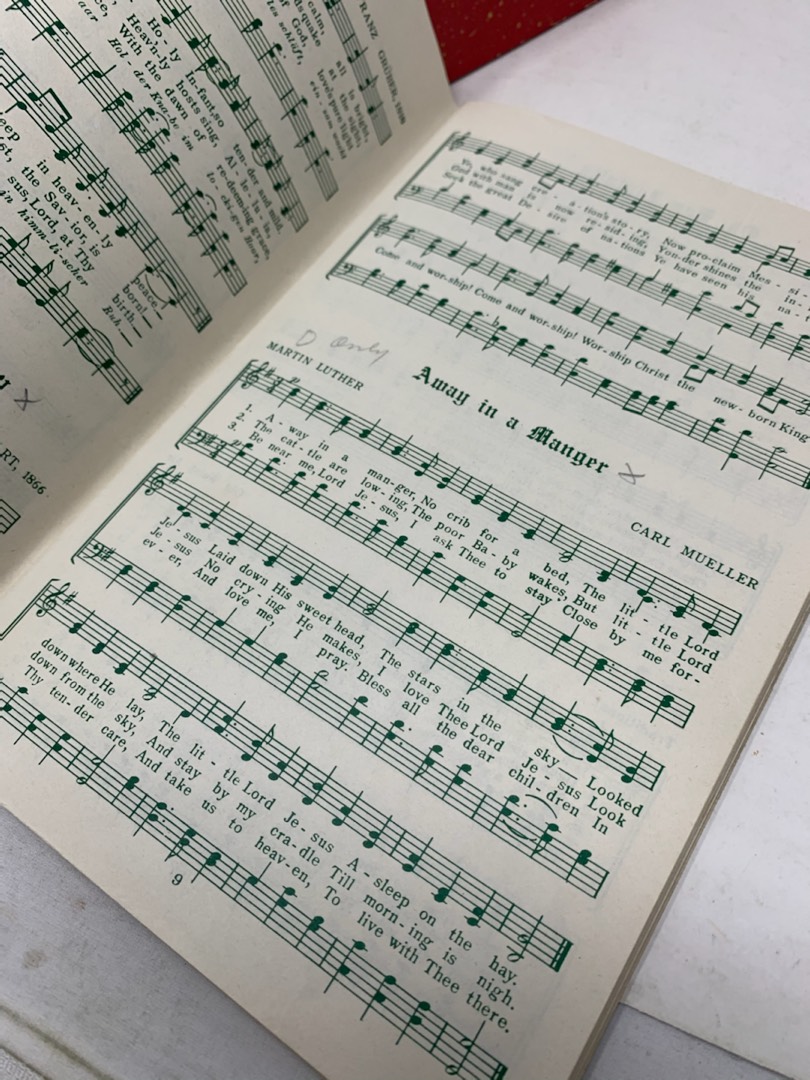 RANZ GRUBER, 1818
calm, all is bright,
quake at the sight,
of God, love's pure light
Ho - ly In-fant, so ten - der and mild,
Heav'n-ly hosts sing, Al - le - lu - ia,
With the dawn of re-deeming grace,
Hol - der Kna - be im lo - cki-gen Haar,
in heav - en - ly peace.
the Sav - ior, is born!
sus, Lord, at Thy birth.
in himm-li-scher Ruh.
RT, 1866.
Ye, who sang cre - a - tion's sto - ry, Now pro-claim Mes - si
God with man is now re - sid - ing, Yon-der shines the in-
Seek the great De - sire of na - tions Ye have seen his na -
Come and wor-ship! Come and wor-ship! Wor-ship Christ the new - born King
D only
Away in a Manger x
MARTIN LUTHER
CARL MUELLER
1. A - way in a man-ger, No crib for a bed, The lit - tle Lord
2. The cat - tle are low - ing, The poor Ba - by wakes, But lit - tle Lord
3. Be near me, Lord Je - sus, I ask Thee to stay Close by me for-
Je - sus Laid down His sweet head, The stars in the sky - Looked
Je - sus No cry - ing He makes, I love Thee Lord Je - sus Look
ev - er, And love me, I pray. Bless all the dear chil - dren In
down where He lay, The lit - tle Lord Je - sus A - sleep on the hay.
down from the sky, And stay by my cra - dle Till morn - ing is nigh.
Thy ten - der care, And take us to heav - en, To live with Thee there.
9